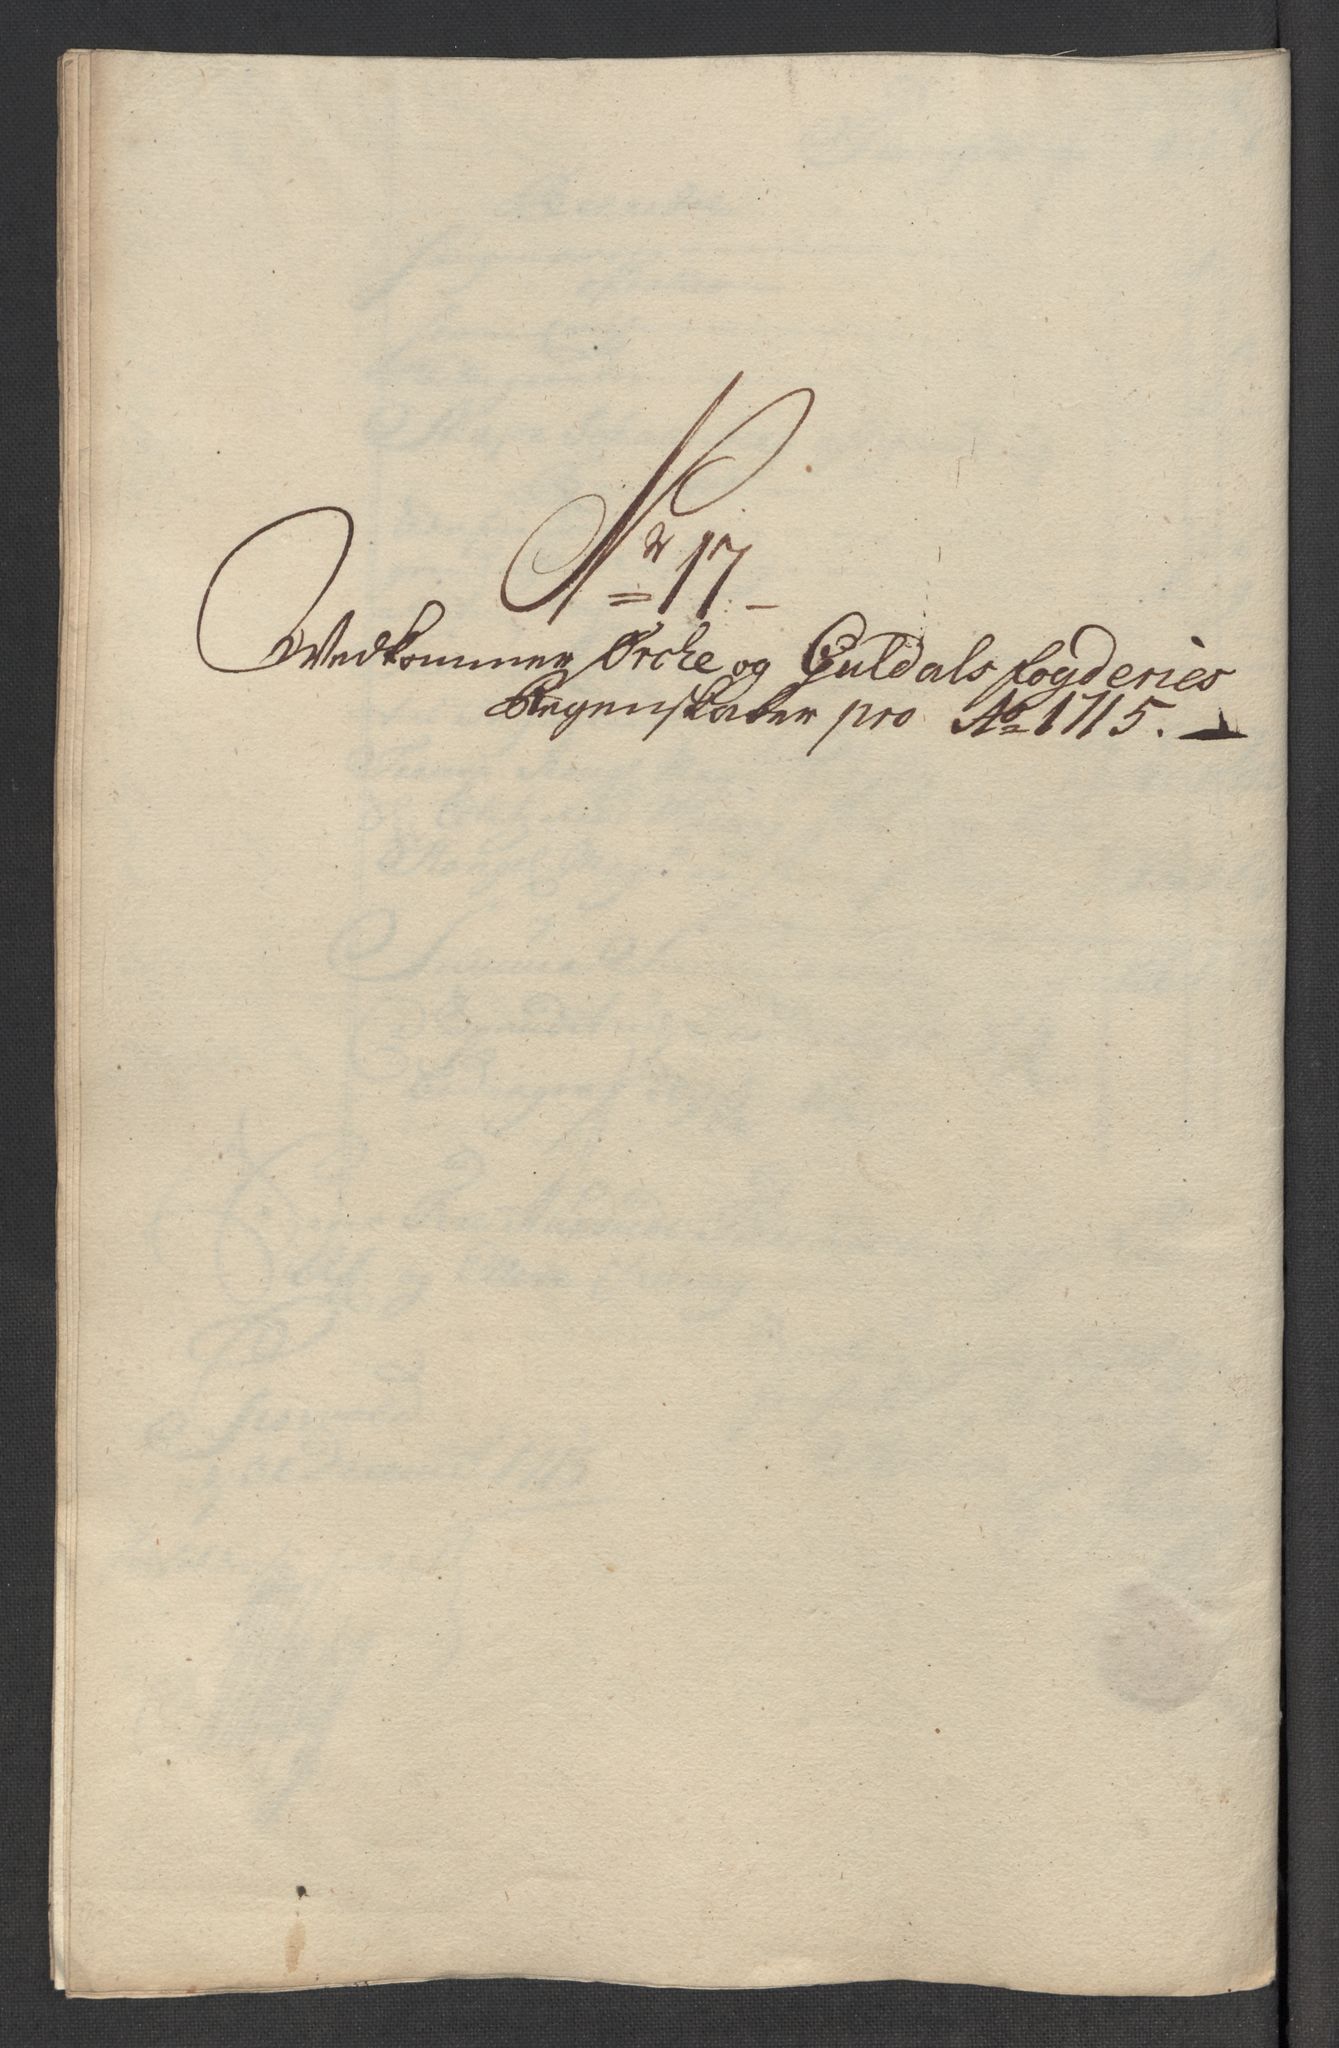 Nr 17
Vedkommer Orche og Guldals fogderies
Regenskaber pro Ao 1715.